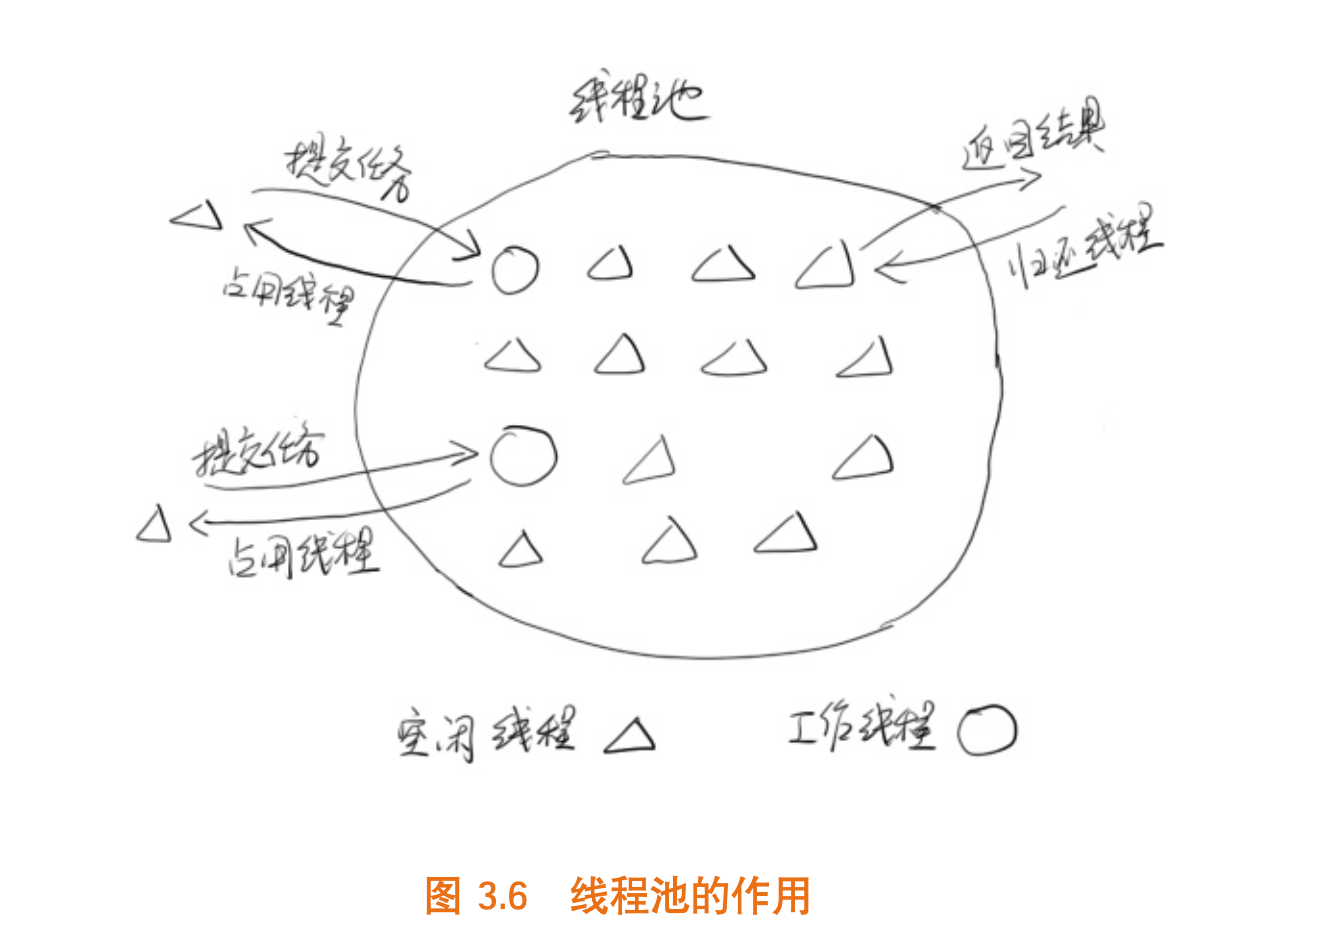 线程池
提交任务
返回结果
占用线程
归还线程
提交任务
占用线程
空闲线程
工作线程
图 3.6 线程池的作用